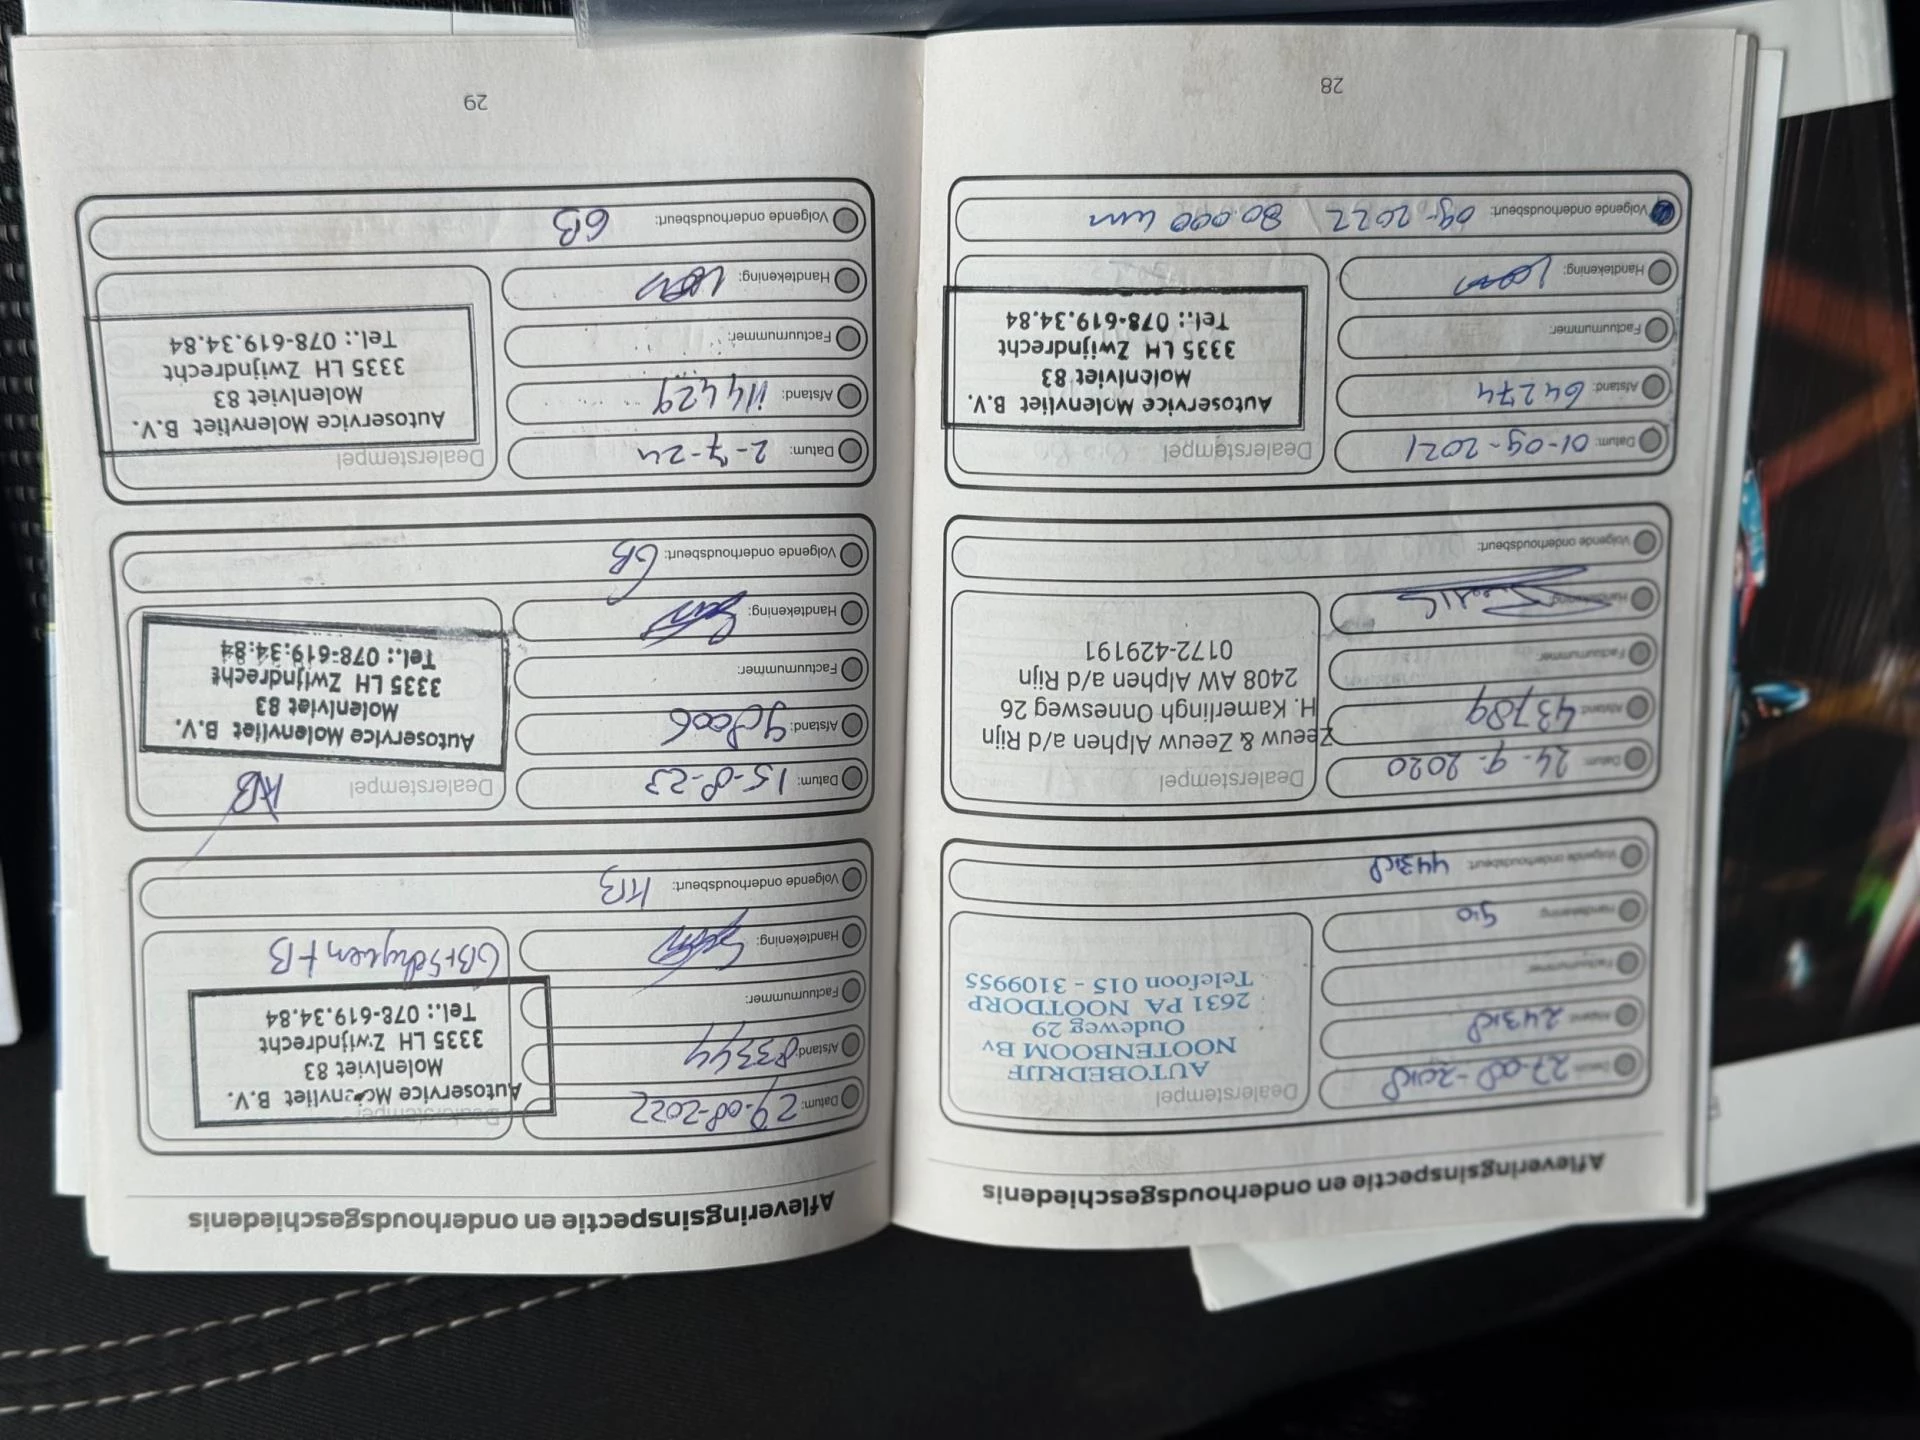 Afleveringsinspectie en onderhoudsgeschiedenis
Datum: 27-08-2018
Afstand: 24318
Factuurnummer:
Handtekening:
Volgende onderhoudsbeurt: 44318
Dealerstempel
AUTOBEDRIJF
NOOTENBOOM BV
Oudeweg 29
2631 PA NOOTDORP
Telefoon 015 - 3109955
Datum: 24-9-2020
Afstand: 43789
Factuurnummer:
Handtekening:
Volgende onderhoudsbeurt:
Dealerstempel
Zeeuw & Zeeuw Alphen a/d Rijn
H. Kamerlingh Onnesweg 26
2408 AW Alphen a/d Rijn
0172-429191
Datum: 01-09-2021
Afstand: 64274
Factuurnummer:
Handtekening:
Volgende onderhoudsbeurt: 09-2022 / 80.000 km
Dealerstempel
Autoservice Molenvliet B.V.
Molenvliet 83
3335 LH Zwijndrecht
Tel.: 078-619.34.84
28
Afleveringsinspectie en onderhoudsgeschiedenis
Datum: 29-08-2022
Afstand: 83344
Factuurnummer:
Handtekening:
Volgende onderhoudsbeurt: KB
Dealerstempel
Autoservice Molenvliet B.V.
Molenvliet 83
3335 LH Zwijndrecht
Tel.: 078-619.34.84
Datum: 15-8-23
Afstand: 98006
Factuurnummer:
Handtekening:
Volgende onderhoudsbeurt: GB
Dealerstempel KB
Autoservice Molenvliet B.V.
Molenvliet 83
3335 LH Zwijndrecht
Tel.: 078-619.34.84
Datum: 2-7-24
Afstand: 114429
Factuurnummer:
Handtekening:
Volgende onderhoudsbeurt: GB
Dealerstempel
Autoservice Molenvliet B.V.
Molenvliet 83
3335 LH Zwijndrecht
Tel.: 078-619.34.84
29